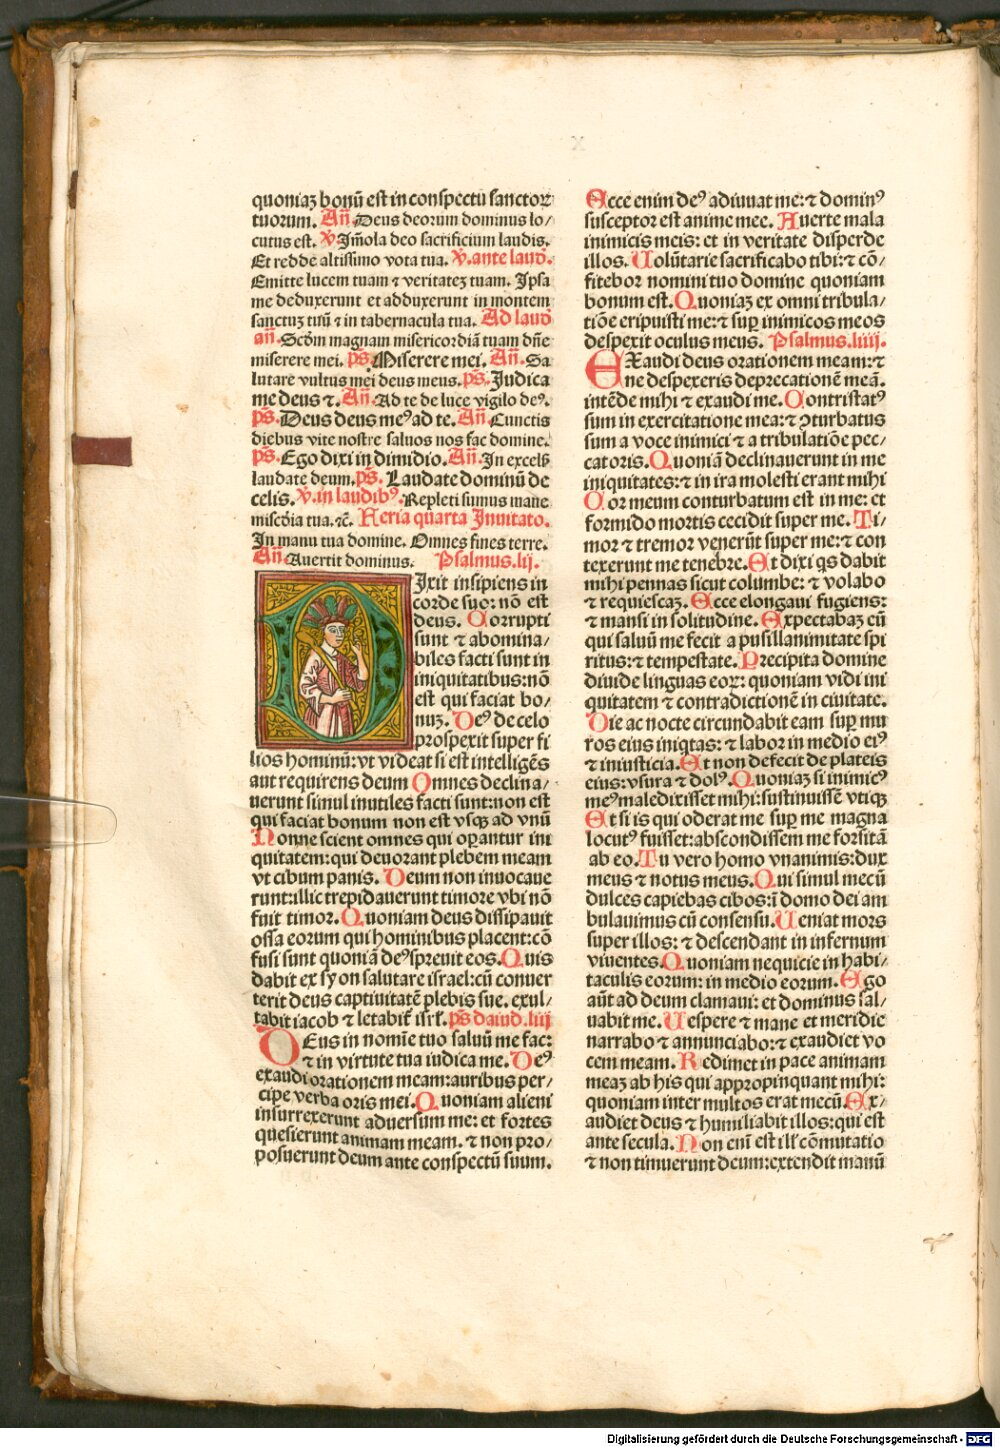 x
quoniaʒ bonū est in conspectu sanctoꝝ
tuorum. Añ. Deus deorum dominus lo/
cutus est. ℣. Im̄ola deo sacrificium laudis.
Et redde altissimo vota tua. ℣. ante laud̄.
Emitte lucem tuam ⁊ veritateʒ tuam. Ipsa
me deduxerunt et adduxerunt in montem
sanctuʒ tuū ⁊ in tabernacula tua. Ad laud̄
añ. Scd̄m magnam misericordiā tuam dn̄e
miserere mei. p̄s. Miserere mei. Añ. Sa
lutare vultus mei deus meus. p̄s. Iudica
me deus ⁊. Añ. Ad te de luce vigilo deꝰ.
p̄s. Deus deus meꝰ ad te. Añ. Cunctis
diebus vite nostre saluos nos fac domine.
p̄s. Ego dixi in dimidio. Añ. In excels̄
laudate deum. p̄s. Laudate dominū de
celis. ℣. in laudibꝰ. Repleti sumus mane
misc̄dia tua. ⁊c̄. Feria quarta Inuitato.
In manu tua domine. Omnes fines terre.
Añ Auertit dominus. Psalmus. lij.
DIxit insipiens in
corde suo: nō est
deus. Corrupti
sunt ⁊ abomina/
biles facti sunt in
iniquitatibus: nō
est qui faciat bo/
nuʒ. Deꝰ de celo
prospexit super fi
lios hominū: vt videat si est intelligēs
aut requirens deum Omnes declina/
uerunt simul inutiles facti sunt: non est
qui faciat bonum non est vsqʒ ad vnū
Nonne scient omnes qui oꝑantur ini
quitatem: qui deuorant plebem meam
vt cibum panis. Deum non inuocaue
runt: illic trepidauerunt timore vbi nō
fuit timor. Quoniam deus dissipauit
ossa eorum qui hominibus placent: cō
fusi sunt quoniā deꝰ spreuit eos. Quis
dabit ex syon salutare israel: cū conuer
terit deus captiuitatē plebis sue. exul/
tabit iacob ⁊ letabit᷑ isrl̄. p̄s dauid. liij
DEus in nomīe tuo saluū me fac:
⁊ in virtute tua iudica me. Deꝰ
exaudi orationem meam: auribus per/
cipe verba oris mei. Quoniam alieni
insurrexerunt aduersum me: et fortes
quesierunt animam meam. ⁊ non pro/
posuerunt deum ante conspectū suum.
Ecce enim deꝰ adiuuat me: ⁊ dominꝰ
susceptor est anime mee. Auerte mala
inimicis meis: et in veritate disperde
illos. Uolūtarie sacrificabo tibi: ⁊ cō/
fitebor nomini tuo domine quoniam
bonum est. Quoniaʒ ex omni tribula/
tiōe eripuisti me: ⁊ suꝑ inimicos meos
despexit oculus meus. Psalmus. liiij.
EXaudi deus orationem meam: ⁊
ne despexeris deprecationē meā.
intēde mihi ⁊ exaudi me. Contristatꝰ
sum in exercitatione mea: ⁊ ꝯturbatus
sum a voce inimici ⁊ a tribulatiōe pec/
catoris. Quoniā declinauerunt in me
iniquitates: ⁊ in ira molesti erant mihi
Cor meum conturbatum est in me: et
formido mortis cecidit super me. Ti/
mor ⁊ tremor venerūt super me: ⁊ con
texerunt me tenebre. Et dixi q̄s dabit
mihi pennas sicut columbe: ⁊ volabo
⁊ requiescaʒ. Ecce elongaui fugiens:
⁊ mansi in solitudine. Expectabaʒ eū
qui saluū me fecit a pusillanimitate spi
ritus: ⁊ tempestate. Precipita domine
diuide linguas eoꝝ: quoniam vidi ini
quitatem ⁊ contradictionē in ciuitate.
Die ac nocte circundabit eam suꝑ mu
ros eius iniqtas: ⁊ labor in medio eiꝰ
⁊ iniusticia. Et non defecit de plateis
eius: vsura ⁊ dolꝰ. Quoniaʒ si inimicꝰ
meꝰ maledixisset mihi: sustinuissē vtiqʒ
Et si is qui oderat me suꝑ me magna
locutꝰ fuisset: abscondissem me forsitā
ab eo. Tu vero homo vnanimis: dux
meus ⁊ notus meus. Qui simul mecū
dulces capiebas cibos: ī domo dei am
bulauimus cū consensu. Ueniat mors
super illos: ⁊ descendant in infernum
viuentes. Quoniam nequicie in habi/
taculis eorum: in medio eorum. Ego
aūt ad deum clamaui: et dominus sal/
uabit me. Uespere ⁊ mane et meridie
narrabo ⁊ annunciabo: ⁊ exaudiet vo
cem meam. Redimet in pace animam
meaʒ ab his qui appropinquant mihi:
quoniam inter multos erat mecū. Ex/
audiet deus ⁊ humiliabit illos: qui est
ante secula. Non enī est ill̓ cōmutatio
⁊ non timuerunt deum: extendit manū
Digitalisierung gefördert durch die Deutsche Forschungsgemeinschaft - DFG